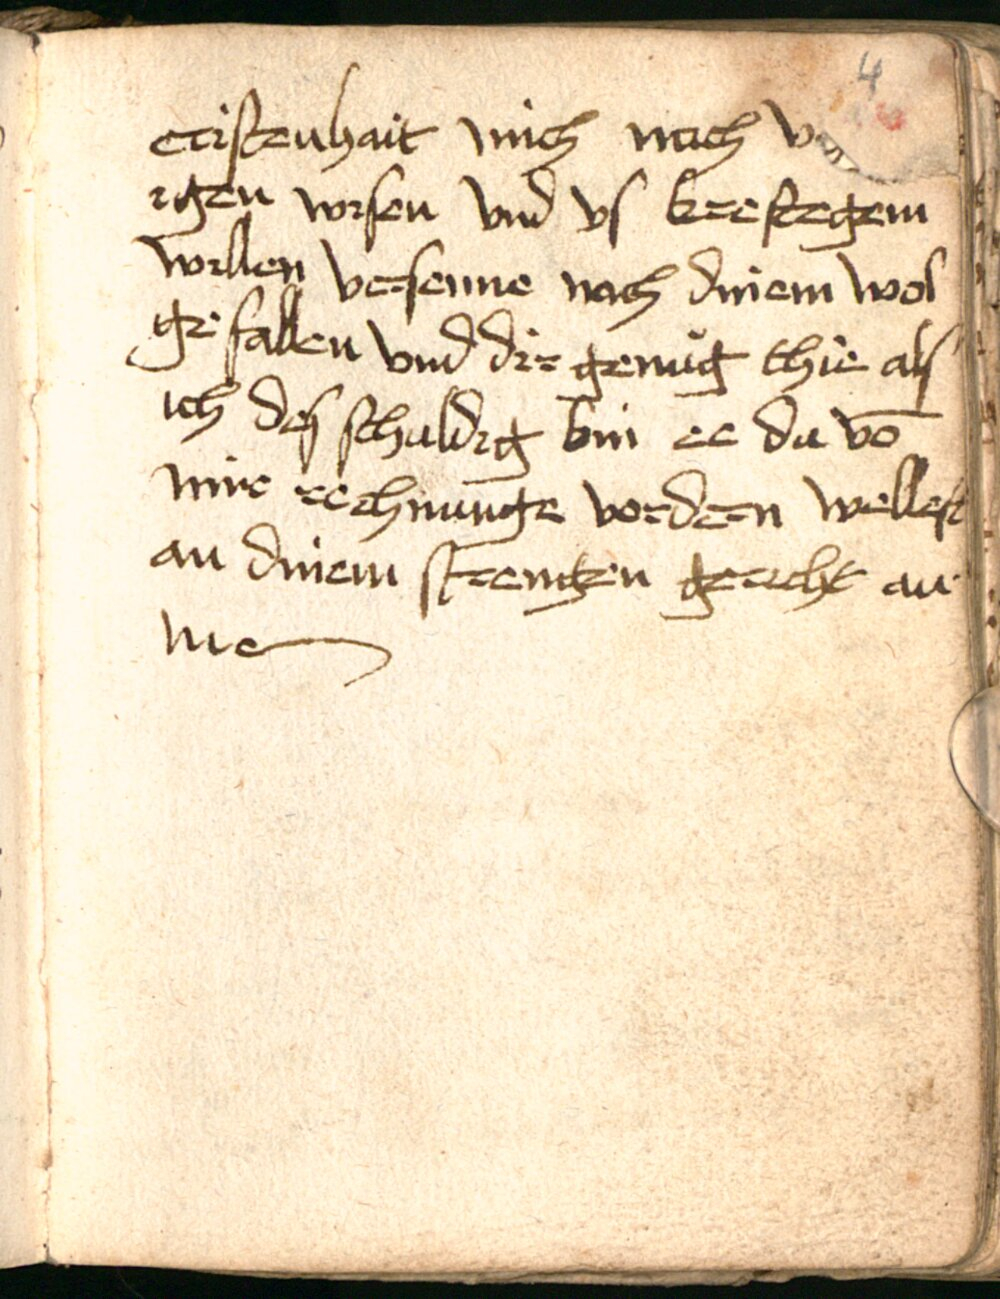 4
cristenhait mich nach
rgen wisen vnd vs kreftegem
willen versenne nach dinem wol
gefallen vnd dir genůg thie als
ich des schuldig bin ee du vō
mir rechnunge vordern wellest
an dinem strengen gericht am
me